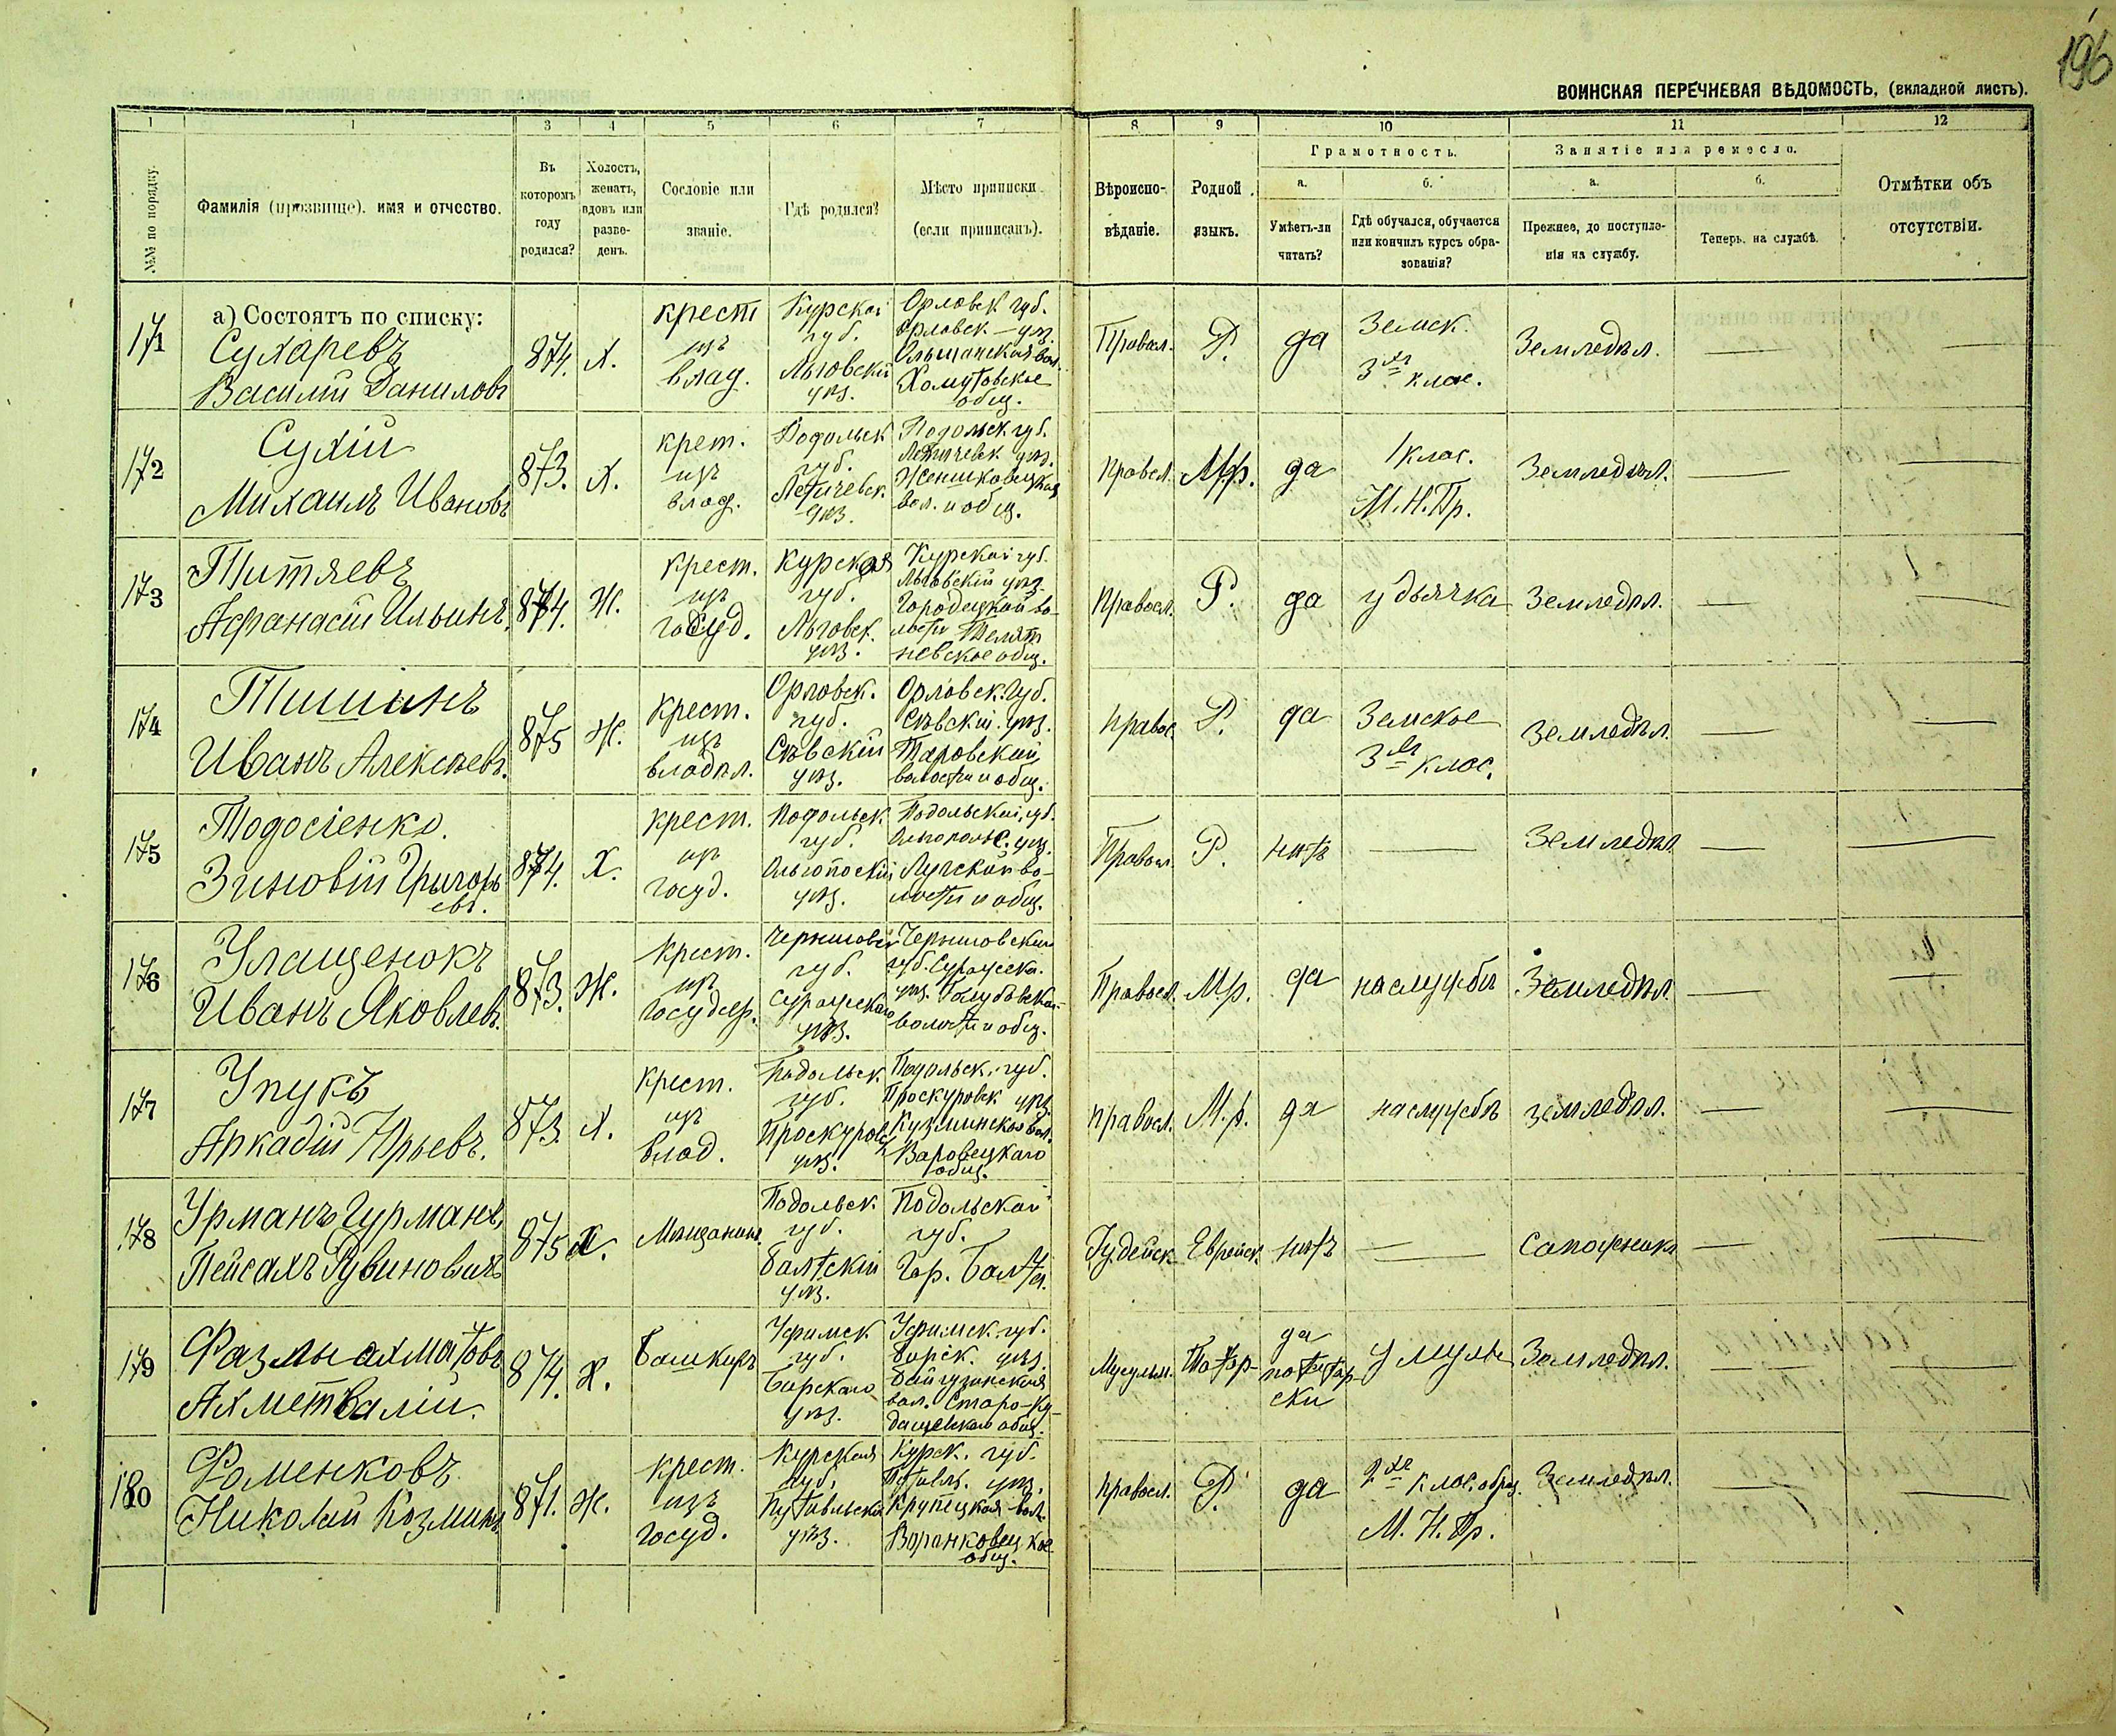 196
ВОИНСКАЯ ПЕРЕЧНЕВАЯ ВѢДОМОСТЬ, (вкладной листъ).
1 1 3 4 5 6 7 8 9 10 11 12
№№ по порядку.
Фамилія (прозвище), имя и отчество.
Въ которомъ году родился?
Холостъ, женатъ, вдовъ или разведенъ.
Сословіе или званіе.
Гдѣ родился?
Мѣсто приписки (если приписанъ).
Вѣроисповѣданіе.
Родной языкъ.
Грамотность.
а. Умѣетъ-ли читать?
б. Гдѣ обучался, обучается или кончилъ курсъ образованія?
Занятіе или ремесло.
а. Прежнее, до поступленія на службу.
б. Теперь, на службѣ.
Отмѣтки объ отсутствіи.
а) Состоятъ по списку:
171
Сухаревъ
Василій Даниловъ
874. Х.
крест
изъ
влад.
Курской
губ.
Льговскій
уѣз.
Орловск губ.
Орловск — уѣз.
Ольшанской вол.
Хомутовское
общ.
Правосл. Р. да
Земск.
3хъ клас.
Земледѣл. —
—
172
Сухій
Михаилъ Ивановъ
873. Х.
крет.
изъ
влад.
Подольск
губ.
Летичевск.
уѣз.
Подольск. губ.
Летичевск уѣз.
вол. и общ.
правсл. М.р. да
1 клас.
М.Н.Пр.
Земледѣл. —
—
173
Титяевъ
Афанасій Ильинъ.
874. Ж.
крест.
изъ
госуд.
Курская
губ.
Льговск.
уѣз.
Курской губ.
Льговскій уѣз.
Городецкой во-
лости
невское общ.
Правосл. Р. да
у дьячка
Земледѣл. —
—
174
Тишинъ
Иванъ Алексѣевъ.
875 Ж.
крест.
изъ
владѣл.
Орловск.
губ.
Сѣвскій
уѣз.
Орловск. губ.
Сѣвскій. уѣз.
волости и общ.
правос. Р. да
Земское
3хъ клас.
Земледѣл. —
—
175
Тодосіенко.
Зиновій Григорь
евъ.
874. Х.
крест.
изъ
госуд.
Подольск
губ.
уѣз.
Подольской губ.
уѣз.
Лугской во-
лости и общ.
Правосл. Р. нѣтъ
—
Земледѣл —
—
176
Улащенокъ
Иванъ Яковлевъ.
873. Ж.
крест.
изъ
государ.
губ.
Суражскаго
уѣз.
Черниговской
губ. Суражска.
уѣз.
волости и общ.
Правосл. М.р. да
на службѣ
Земледѣл —
—
177
Упукъ
Аркадій Юрьевъ.
873. Х.
крест.
изъ
влад.
Подольск.
губ.
Проскуровск
уѣз.
Подольск. губ.
Проскуровск уѣз.
Кузминской вол.
Варовецкаго
общ.
правосл. М.р. да
на службѣ
земледѣл. —
—
178
Урманъ Гурманъ,
Пейсахъ Рувиновичъ
875 Х.
Мѣщанинъ.
Подольск.
губ.
Балтскій
уѣз.
Подольской
губ.
Гор. Балты.
Іудейск. Еврейск. нѣтъ
—
Сапожникъ —
—
179
Фазлыахматовъ
Ахметвалій.
874. Х.
Башкиръ
Уфимск
губ.
Бирскаго
уѣз.
Уфимск. губ.
Бирск. уѣз.
Байгузинской
вол. Старо-Ку-
дашевскаго общ.
Мусульм. Татар-
да
по татар
ски
у муллы
Земледѣл. —
—
180
Фоменковъ
Николай Козминъ
871. Ж.
крест.
изъ
госуд.
Курская
губ.
Путивльскій
уѣз.
Курск. губ.
Путивл. уѣз.
Крупецкая вол.
общ.
правосл. Р. да
2хъ клас. образ.
М. Н. Пр.
Земледѣл. —
—